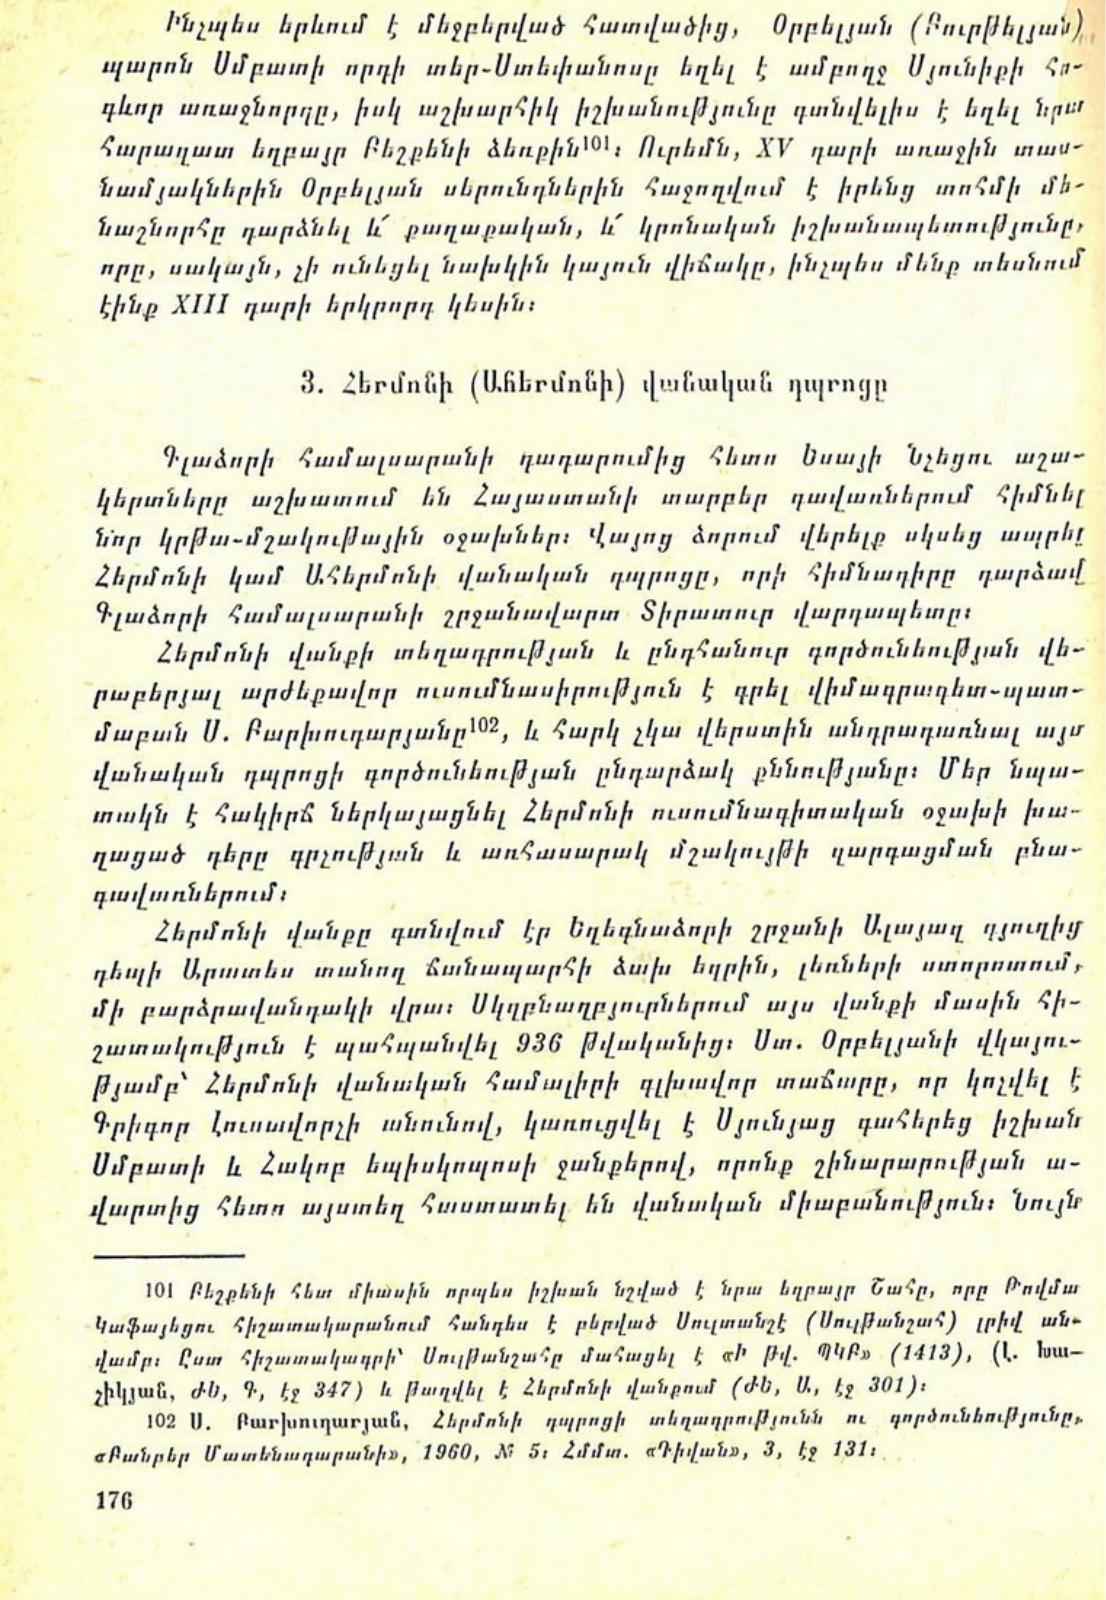 Ինչպես երևում է մեջբերված հատվածից, Օրբելյան (Բուրթելյան)
պարոն Սմբատի որդի տեր-Ստեփանոսը եղել է ամբողջ Սյունիքի հո-
գևոր առաջնորդը, իսկ աշխարհիկ իշխանությունը գտնվելիս է եղել նրա
հարազատ եղբայր Բեշքենի ձեռքին101։ Ուրեմն, XV դարի առաջին տաս-
նամյակներին Օրբելյան սերունդներին հաջողվում է իրենց տոհմի մե-
նաշնորհը դարձնել և՛ քաղաքական, և՛ կրոնական իշխանապետությունը,
որը, սակայն, չի ունեցել նախկին կայուն վիճակը, ինչպես մենք տեսնում
էինք XIII դարի երկրորդ կեսին։
3. Հերմոնի (Ահերմոնի) վանական դպրոցը
Գլաձորի համալսարանի դադարումից հետո Եսայի Նչեցու աշա-
կերտները աշխատում են Հայաստանի տարբեր գավառներում հիմնել
նոր կրթա-մշակութային օջախներ։ Վայոց ձորում վերելք սկսեց ապրել
Հերմոնի կամ Ահերմոնի վանական դպրոցը, որի հիմնադիրը դարձավ
Գլաձորի համալսարանի շրջանավարտ Տիրատուր վարդապետը։
Հերմոնի վանքի տեղադրության և ընդհանուր գործունեության վե-
րաբերյալ արժեքավոր ուսումնասիրություն է գրել վիմագրագետ-պատ-
մաբան Ս. Բարխուդարյանը102, և հարկ չկա վերստին անդրադառնալ այս
վանական դպրոցի գործունեության ընդարձակ քննությանը։ Մեր նպա-
տակն է հակիրճ ներկայացնել Հերմոնի ուսումնագիտական օջախի խա-
ղացած դերը գրչության և առհասարակ մշակույթի զարգացման բնա-
գավառներում։
Հերմոնի վանքը գտնվում էր Եղեգնաձորի շրջանի Ալայազ գյուղից
դեպի Արատես տանող ճանապարհի ձախ եզրին, լեռների ստորոտում,
մի բարձրավանդակի վրա։ Սկզբնաղբյուրներում այս վանքի մասին հի-
շատակություն է պահպանվել 936 թվականից։ Ստ. Օրբելյանի վկայու-
թյամբ՝ Հերմոնի վանական համալիրի գլխավոր տաճարը, որ կոչվել է
Գրիգոր Լուսավորչի անունով, կառուցվել է Սյունյաց գահերեց իշխան
Սմբատի և Հակոբ եպիսկոպոսի ջանքերով, որոնք շինարարության ա-
վարտից հետո այստեղ հաստատել են վանական միաբանություն։ Նույն
101 Բեշքենի հետ միասին որպես իշխան նշված է նրա եղբայր Շահը, որը Թովմա
Կաֆայեցու հիշատակարանում հանդես է բերված Սուլտանշէ (Սուլթանշահ) լրիվ ան-
վամբ։ Ըստ հիշատակագրի՝ Սուլթանշահը մահացել է «Ի թվ. ՊԿԲ» (1413), (Լ. Խա-
չիկյան, ԺԵ, Գ, էջ 347) և թաղվել է Հերմոնի վանքում (ԺԵ, Ա, էջ 301)։
102 Ս. Բարխուդարյան, Հերմոնի դպրոցի տեղադրությունն ու գործունեությունը,
«Բանբեր Մատենադարանի», 1960, № 5։ Հմմտ. «Դիվան», 3, էջ 131։
176